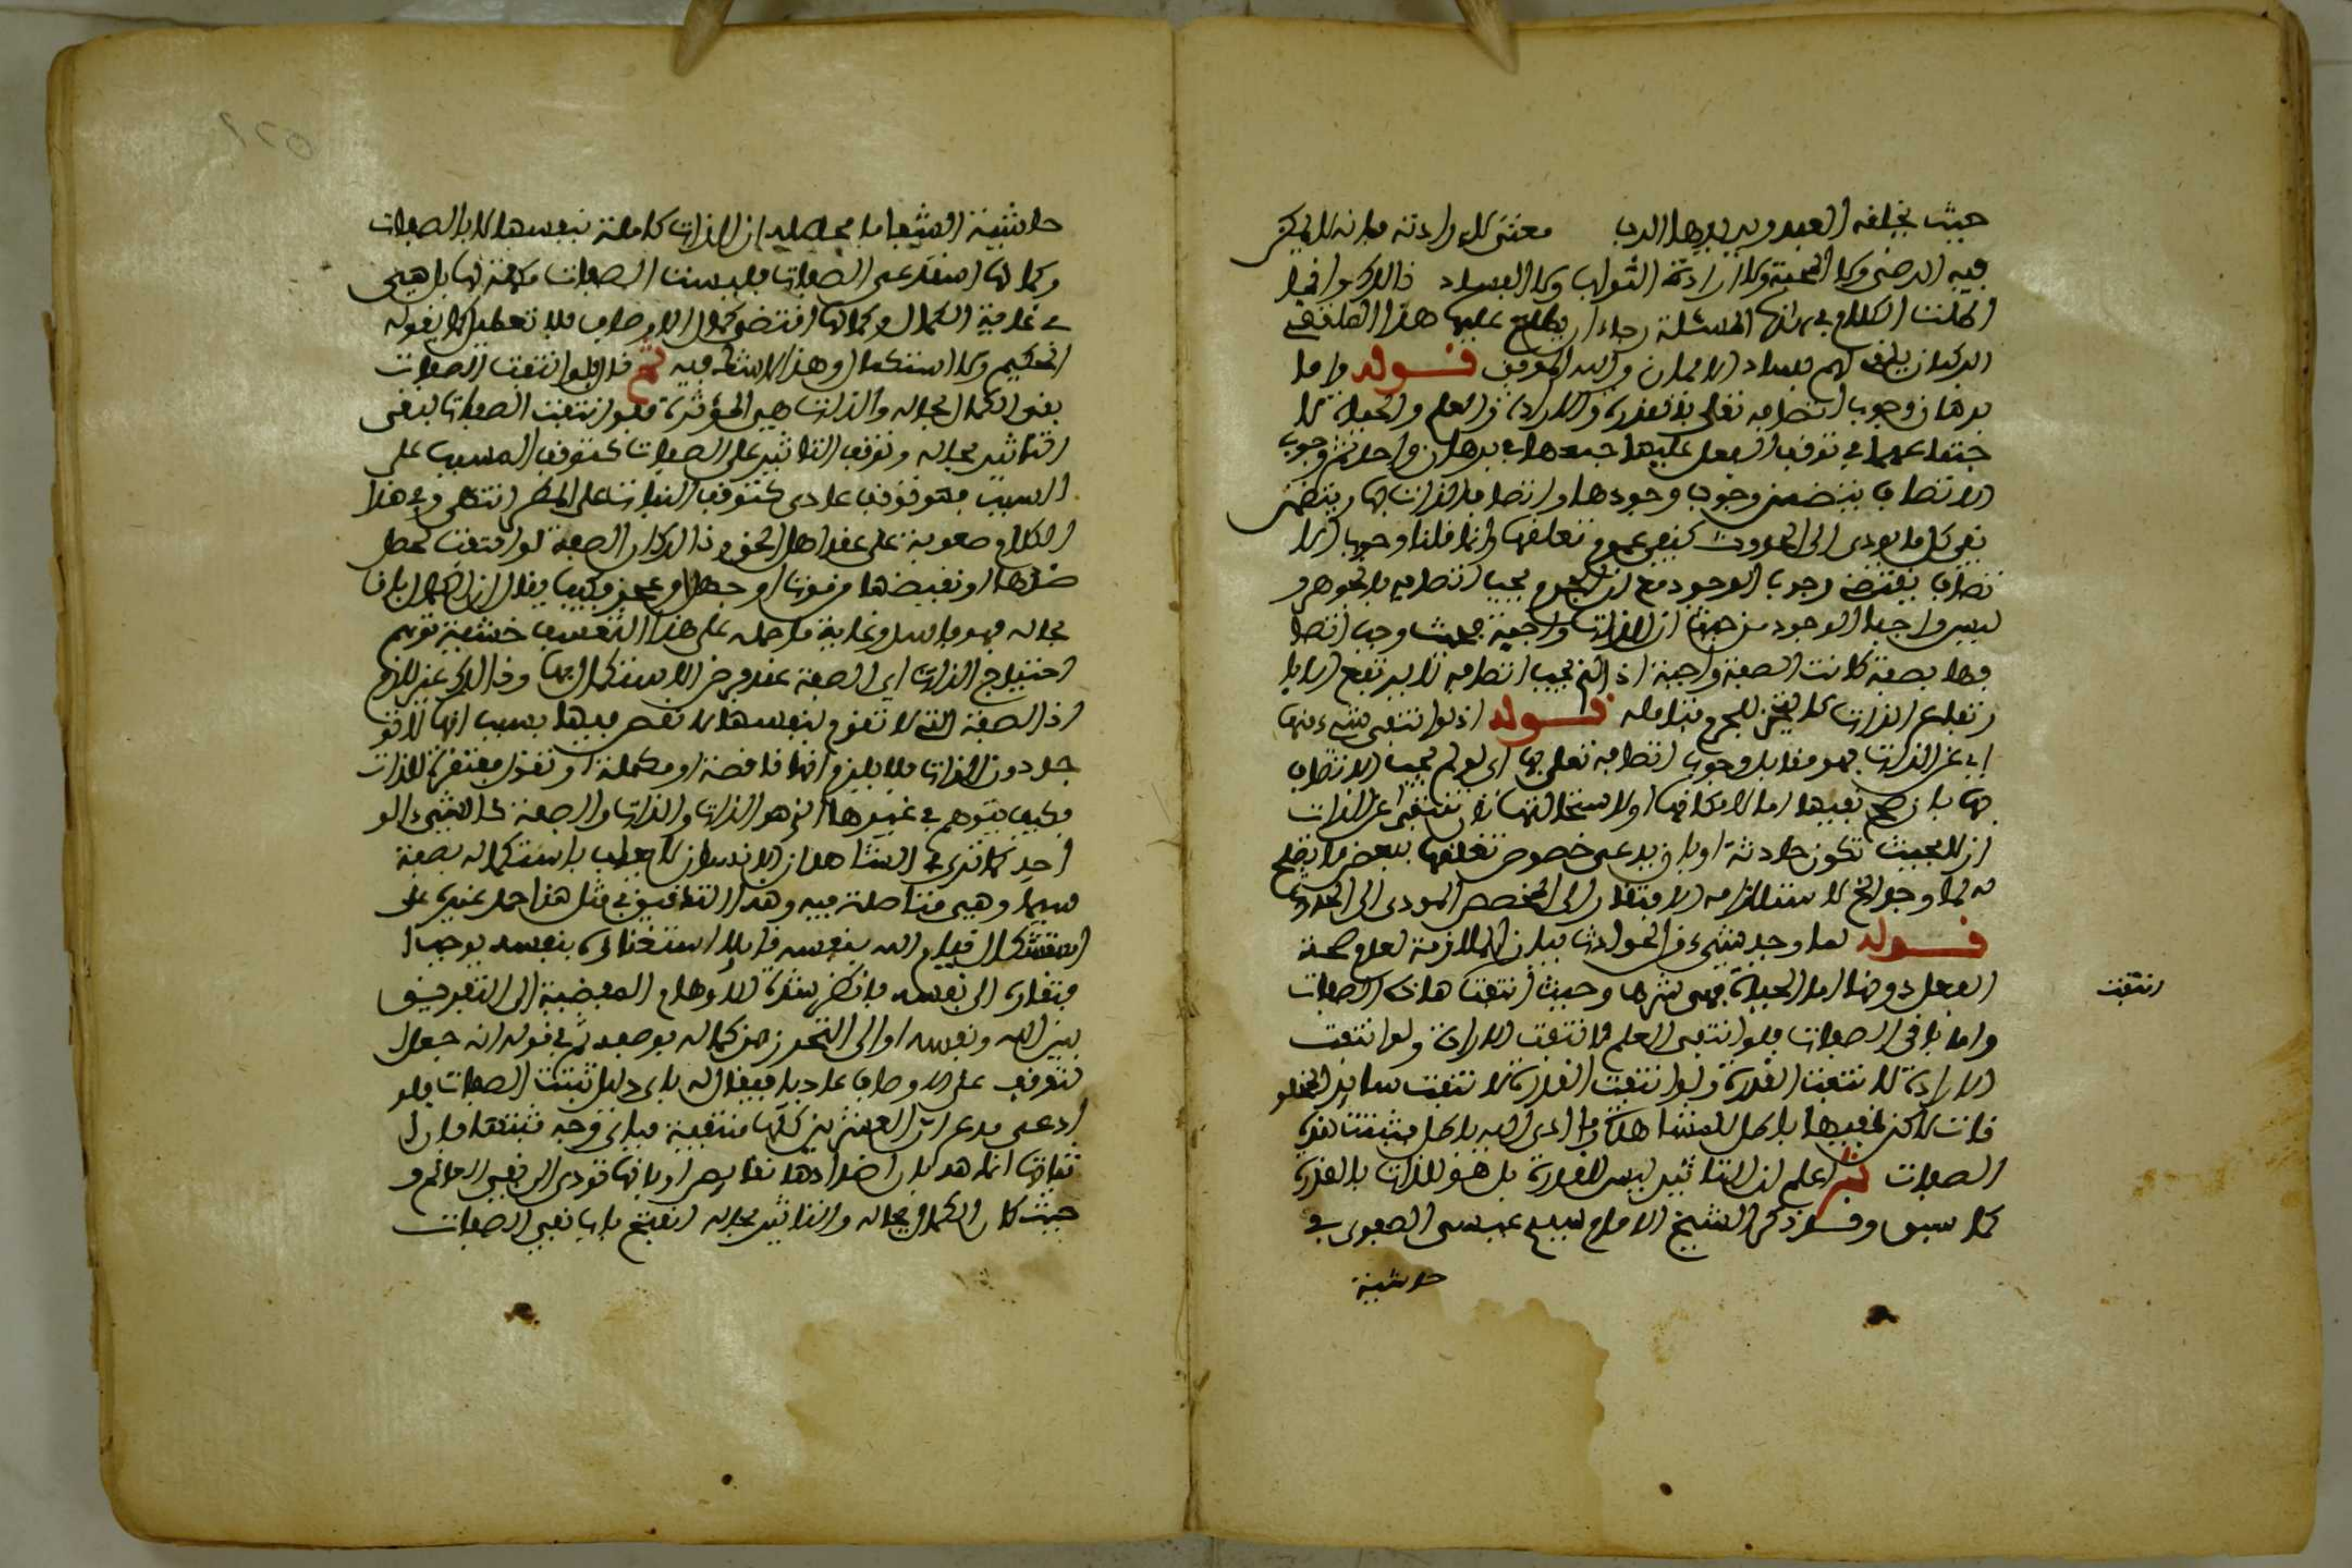 حيث يخلفه العبد ويريدها الرب معنى لارادته فانه لا يمكن
فيه الرضى ولا المحبة ولا ارادة الثواب ولا الفساد ذالك وانما
اطلت الكلام في هاته المسئلة رجاء ان يطلع عليها هذا
لهم فساد الايمان والله الموفق قوله واما
برهان وجوب اتصافه تعلى بالقدرة والارادة والعلم والحياة لا
عها في توقف الفعل عليها جمعها في برهان واحد ثم وجوب
الاتصاف يتضمن وجوب وجودها واتصاف الذات بها ويتضمن
نفي كل ما يودي الى الحدوث كنفي عموم تعلقها وانما قلنا وجوب الا
تصاف يقتضي وجوب الوجود مع ان الجرم يجب اتصافه بالجوهر و
ليس واجب الوجود من حيث ان الذات واجبة فحيث وجب اتصا
فها بصفة كانت الصفة واجبة اذ الذي يجب اتصافه لا يرتفع الا با
رتفاع الذات كالتحيز للجرم فتامله قوله اذ لو انتفى شيء منها
اي عن الذات فهو مقابل وجوب اتصافه تعلى بها اي لو لم يجب الاتصاف
بها بان صح نفيها اما لامكانها او لاستحالتها لان تنتفي عن الذات
ازلا بحيث تكون حادثة او بان يدعى خصوص تعلقها ببعض ما يصلح
له لما وجد الخ لاستلزامه الافتقار الى المخصص المودي الى الحدوث
قوله لما وجد شيء من الحوادث بيان الملازمة لعدم صحة
الفعل دونها اما الحياة فهي شرط وحيث انتفت هاذه الصفات
انتفت
واما باقي الصفات فلو انتفى العلم لانتفت الارادة ولو انتفت
الارادة لانتفت القدرة ولو انتفت القدرة لانتفت ساير المخلو
قات لاكن نفيها باطل للمشاهدة وما ادى اليه باطل فثبتت هذه
الصفات ثم اعلم ان التاثير ليس للقدرة بل هو للذات بالقدرة
كما سبق وقد ذكر الشيخ الامام سيدي عيسى الصفوي في
حاشية
حاشية الشفا ما محصله ان الذات كاملة بنفسها لا بالصفات
وكمالها استدعى الصفات فليست الصفات مكملة لها بل هي
في غاية الكمال وكمالها اقتضى كمال الاوصاف فلا تعطيل كما يقوله
الحكيم ولا استكمال وهذا لا شك فيه ثم قال فلو انتفت الصفات
بقي الكمال بحاله والذات هي المؤثرة فلو انتفت الصفات لبقي
التاثير بحاله وتوقف التاثير على الصفات كتوقف المسبب على
السبب فهو توقف عادي كتوقف النبات على المطر انتهى وفي هذا
الكلام صعوبة على عقد اهل الحق وذالك ان الصفة لو انتفت لحصل
ضدها او نقيضها من موت او جهل او عجز وكيف يقال ان الكمال باق
بحاله فهو فاسد وغاية ما حمله على هذا التعسف خشية توهم
احتياج الذات الى الصفة عند فرض الاستكمال بها وذالك غير لازم
اذ الصفة التي لا تقوم بنفسها لا نقص فيها بسبب انها لا تو
جد دون الذات فلا يلزم انها ناقصة او مكملة او تقول مفتقرة للذات
فكيف يتوهم في غيرها الذي هو الذات والذات والصفة كالشيء الو
احد كما ترى في الشاهد ان الانسان لا يعاب باستكماله بصفة
سيما وهي متاصلة فيه وهذا التدقيق في مثل هذا حمل غيره على
استشكال قيام الله بنفسه قايلا استغناؤه بنفسه يوجب ا
فتقاره الى نفسه فانظر شدة الاوهام المفضية الى التفريق
بين الله ونفسه او الى التحرز من كماله بوصفه ثم في قوله انه جعل ا
لتوقف على الاوصاف عاديا فيقال له باي دليل تثبت الصفات فلو
ادعى مدع ان العشرين كلها منتفية فباي وجه تثبتها فان ا
ثباتها انما هو بان اضدادها نقايص او بانها تودي الى نفي العالم و
حيث كان الكمال بحاله والتاثير بحاله انفتح باب نفي الصفات